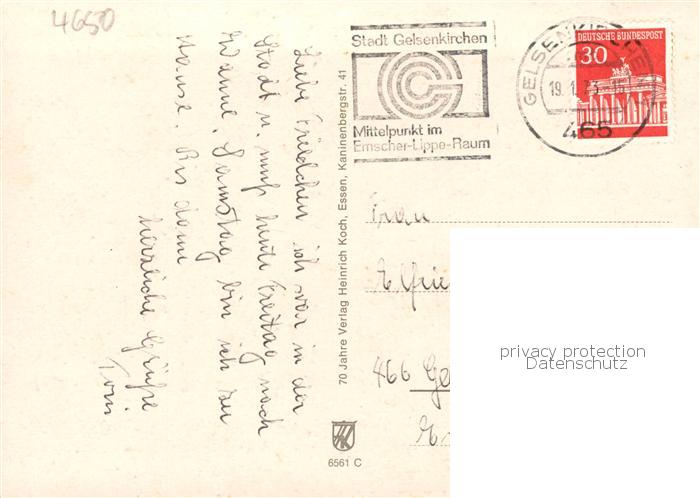 4650
Liebe Friedchen ich war in der
Stadt u. muß heute Freitag nach
Wanne. Samstag bin ich zu
Hause. Bis dann
herzliche Grüße
Toni
70 Jahre Verlag Heinrich Koch, Essen, Kaninenbergstr. 41
Stadt Gelsenkirchen
Mittelpunkt im
Emscher-Lippe-Raum
GELSENKIRCHEN
19.1.73
465
DEUTSCHE BUNDESPOST
30
Frau
466 Ge
6561 C
privacy protection
Datenschutz